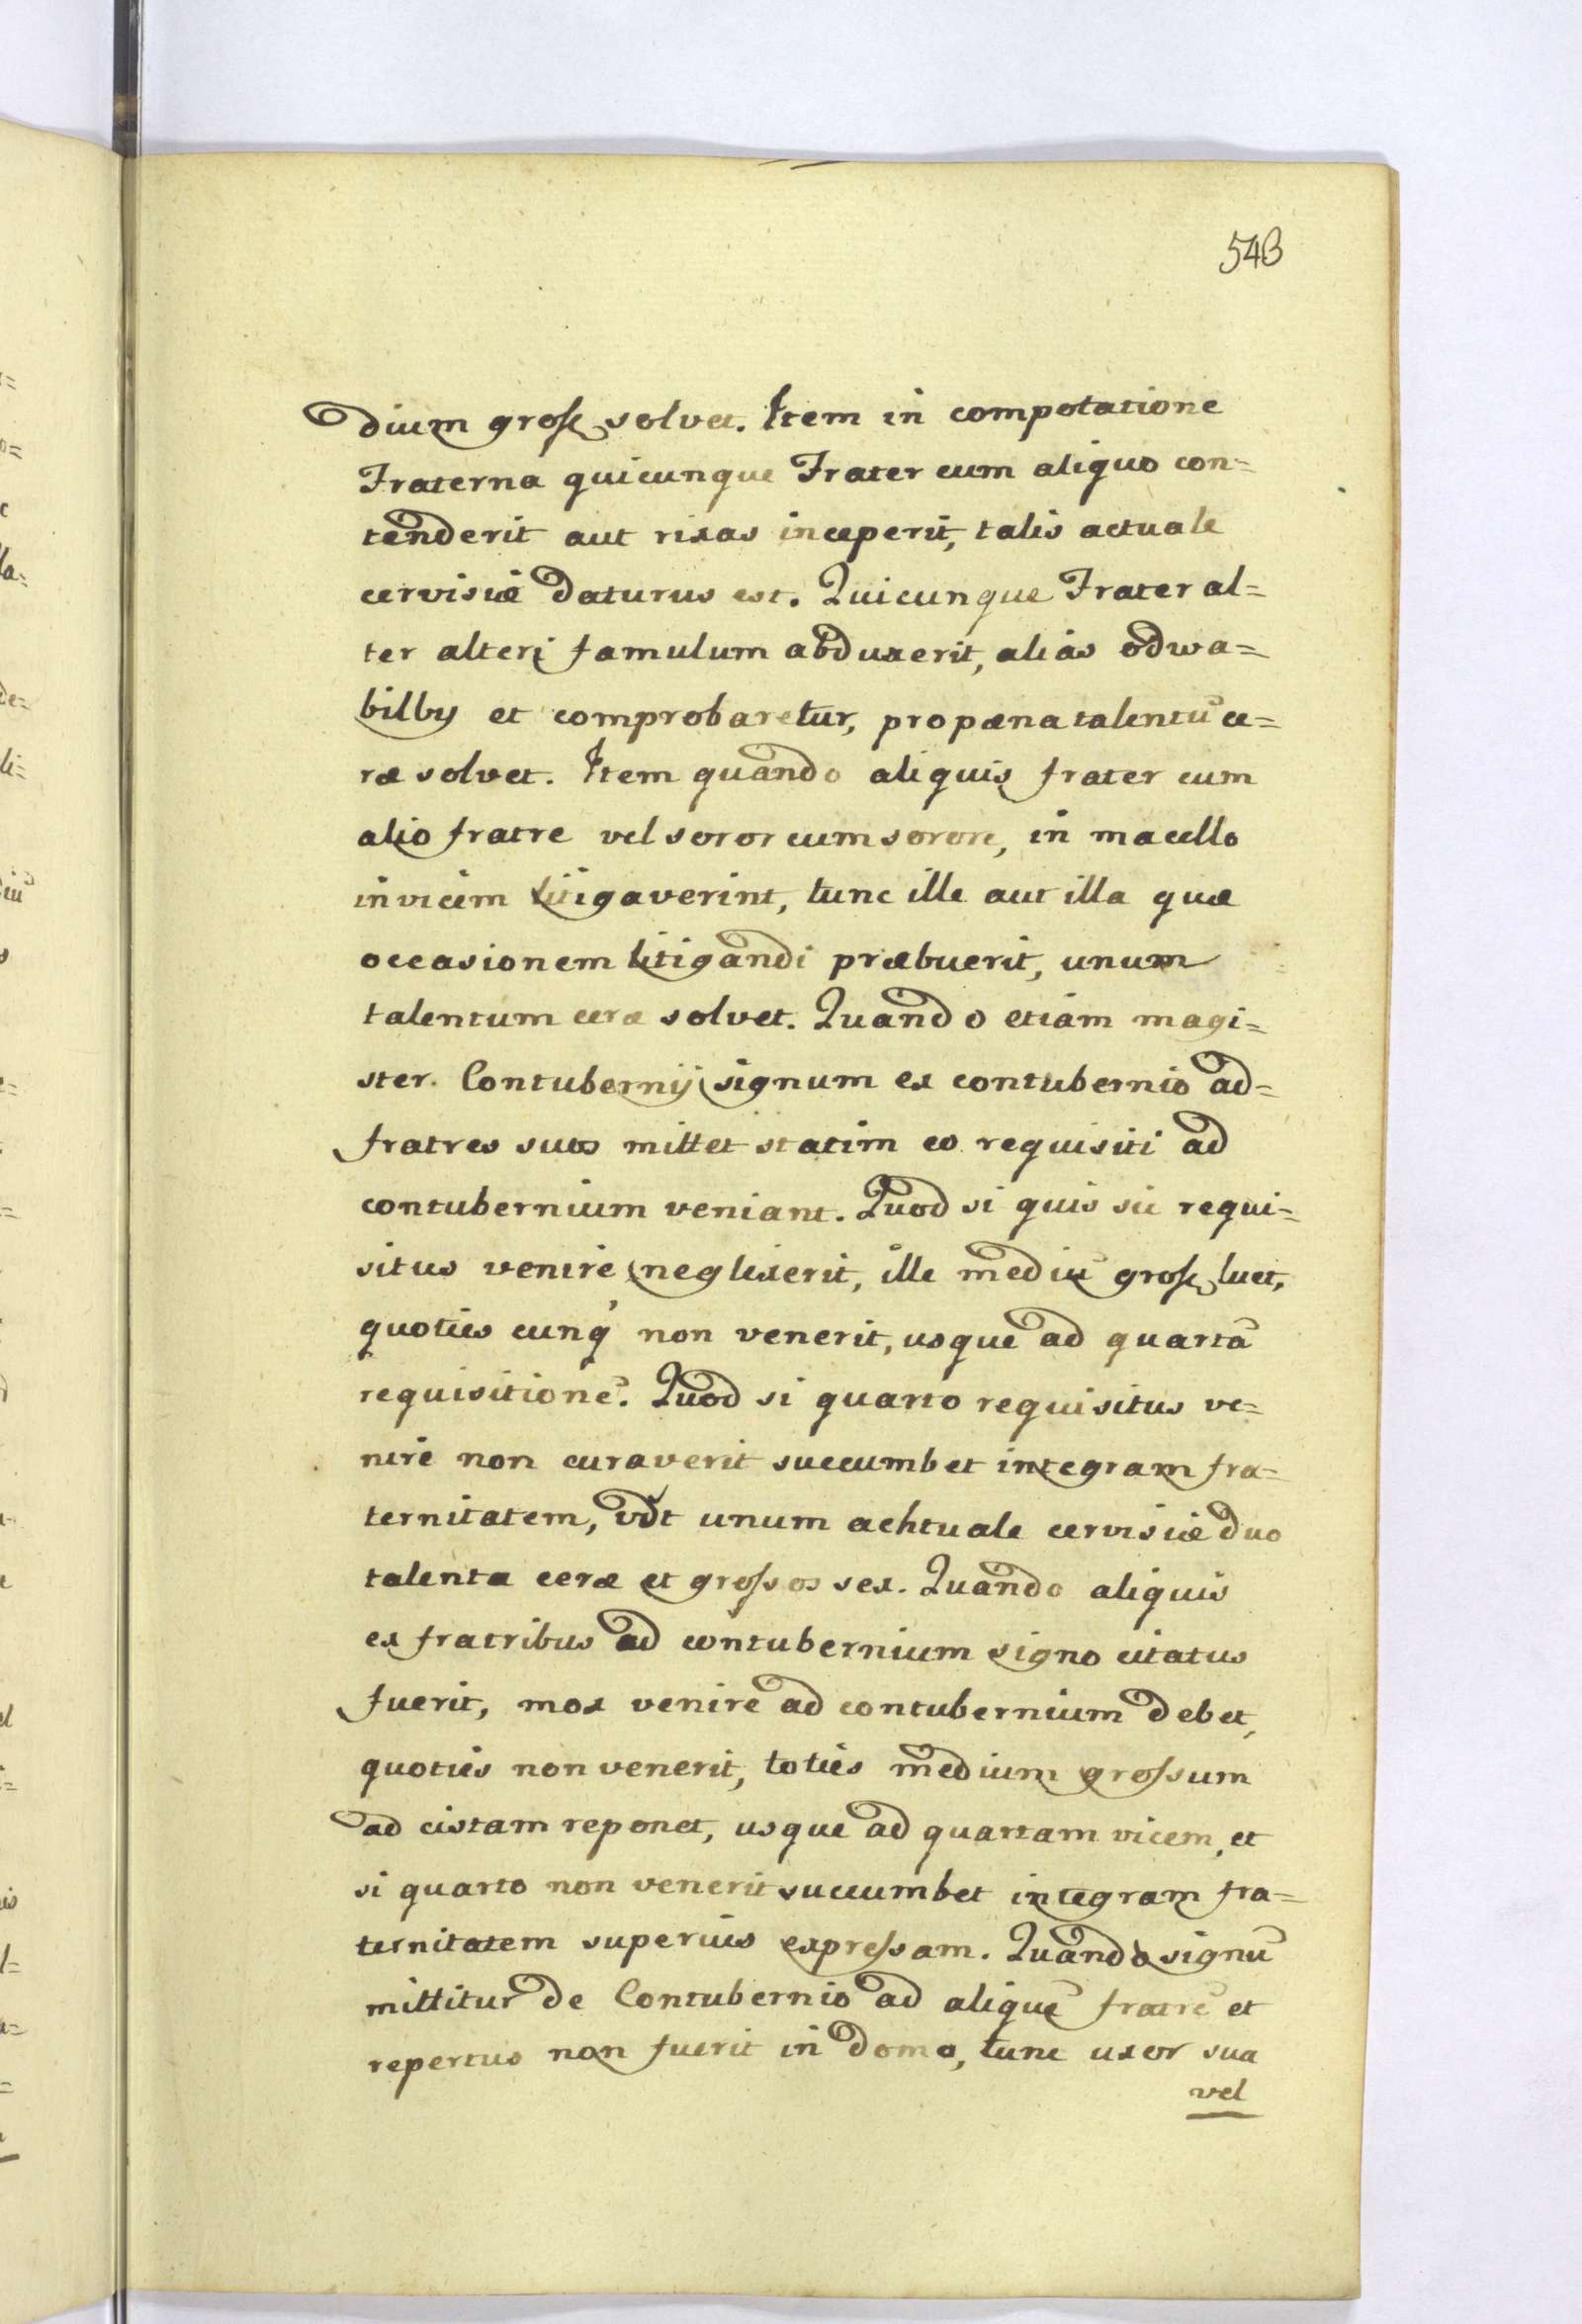 543
dium gross solvet. Item in compotatione
Fraterna quicunque Frater cum aliquo con=
tenderit aut rixas inceperit, talis actuale
cervisiæ daturus est. Quicunque Frater al=
ter alteri famulum abduxerit, alias odwa=
bilby et comprobaretur, propæna talentū ce=
ræ solvet. Item quando aliquis frater cum
alio fratre vel soror cum sorore, in macello
invicem litigaverint, tunc ille aut illa quæ
occasionem litigandi præbuerit, unum
talentum ceræ solvet. Quando etiam magi=
ster Contubernij signum ex contubernio ad=
fratres suos mittet statim eo requisiti ad
contubernium veniant. Quod si quis sic requi=
situs venire neglixerit, ille mediū gross luet,
quoties cunq́ non venerit, usque ad quartā
requisitionē. Quod si quarto requisitus ve=
nire non curaverit succumbet integram fra=
ternitatem, vdt unum achtuale cervisiæ duo
talenta ceræ et grossos sex. Quando aliquis
ex fratribus ad contubernium signo citatus
fuerit, mox venire ad contubernium debet,
quoties non venerit, toties medium grossum
ad cistam reponet, usque ad quartam vicem, et
si quarto non venerit succumbet integram fra=
ternitatem superius expressam. Quando signū
mittitur de Contubernio ad aliquē fratrē et
repertus non fuerit in domo, tunc uxor sua
vel